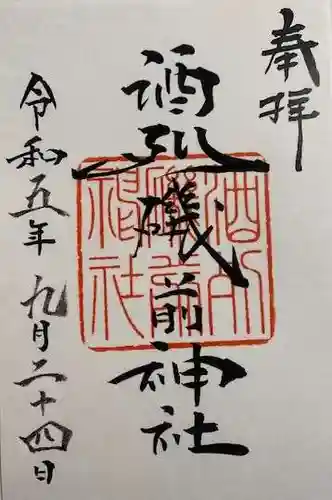 奉拝
酒列磯前神社
令和五年九月二十四日
酒列
磯前
神社